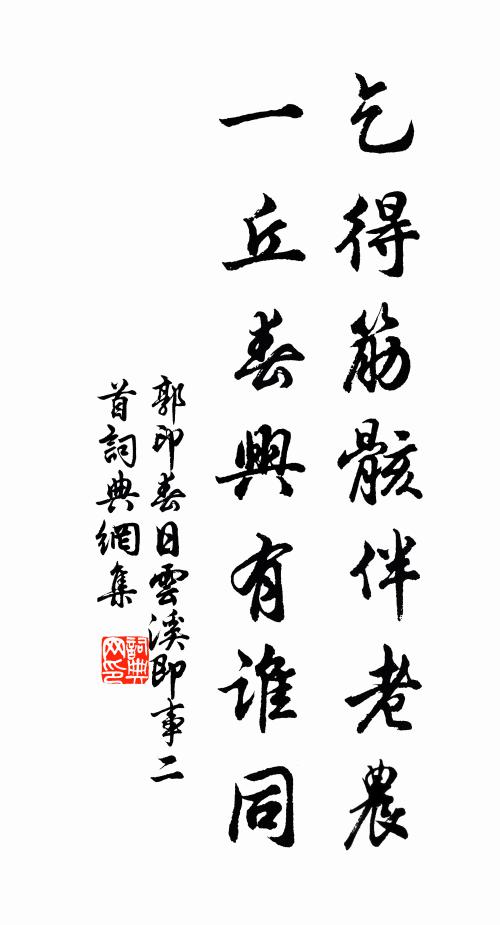 乞得筋骸伴老農
一丘春興有誰同
郭印春日雲溪即事二
首詞典網集
詞典
网印